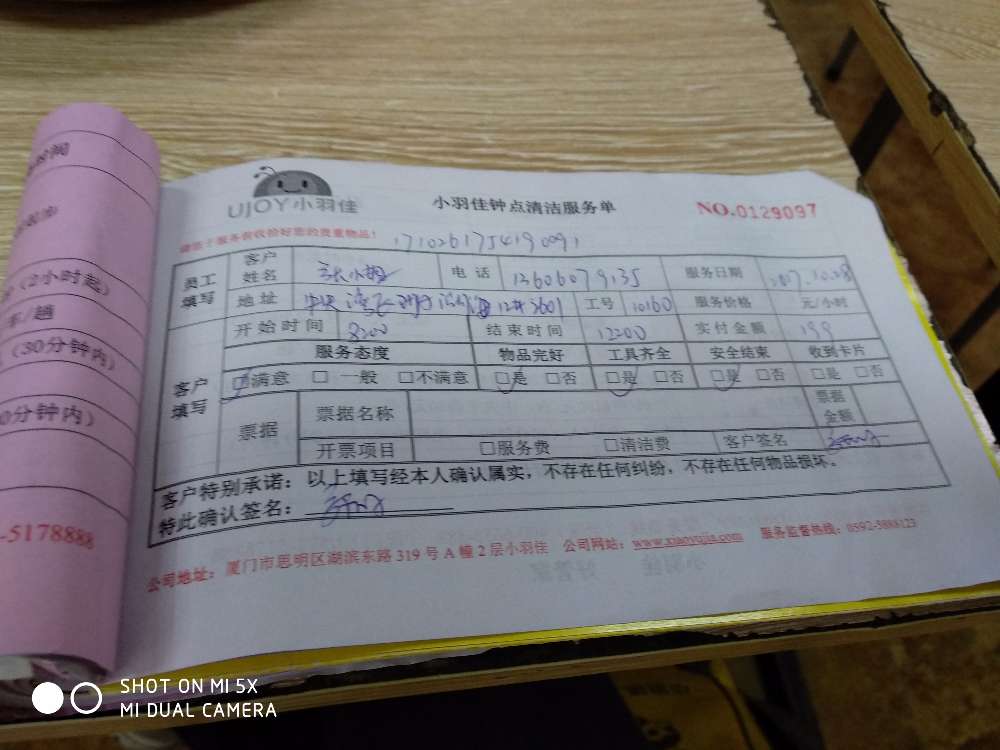 时间
(2小时起)
车/趟
(30分钟内)
0分钟内)
-5178888
UJOY小羽佳
小羽佳钟点清洁服务单
NO.0129097
1710261754190091
员工填写 客户姓名 张小姐 电话 13606079135 服务日期 2017.10.28
地址 12# 2601 工号 10160 服务价格 元/小时
开始时间 8:00 结束时间 12:00 实付金额 199
客户填写 服务态度 物品完好 工具齐全 安全结束 收到卡片
☑满意 □一般 □不满意 ☑是 □否 ☑是 □否 ☑是 □否 □是 □否
票据 票据名称 票据金额
开票项目 □服务费 □清洁费 客户签名
客户特别承诺：以上填写经本人确认属实，不存在任何纠纷，不存在任何物品损坏。
特此确认签名：
公司地址：厦门市思明区湖滨东路 319 号 A 幢 2 层小羽佳 公司网站：www.xiaoyujia.com 服务监督热线：0592-5888123
SHOT ON MI 5X
MI DUAL CAMERA